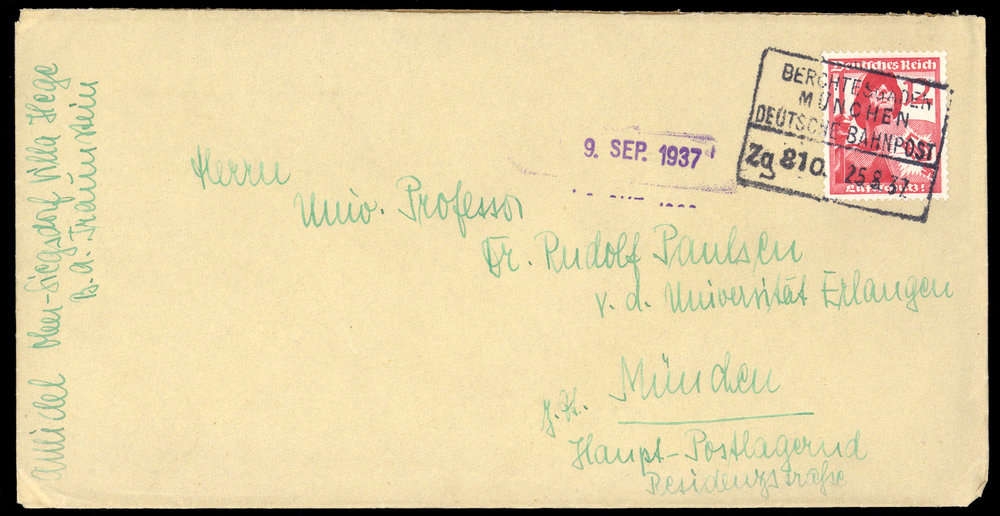 Ober-Siegsdorf Villa Hege
B. a. Traunstein
Deutsches Reich
12
Luftschutz!
BERCHTESGADEN
MÜNCHEN
DEUTSCHE BAHNPOST
Zg 810. 25.8.37.
9. SEP. 1937
Herrn
Univ. Professor
Dr. Rudolf Paulsen
v. d. Universität Erlangen
München
z. Zt.
Haupt-Postlagernd
Residenzstraße